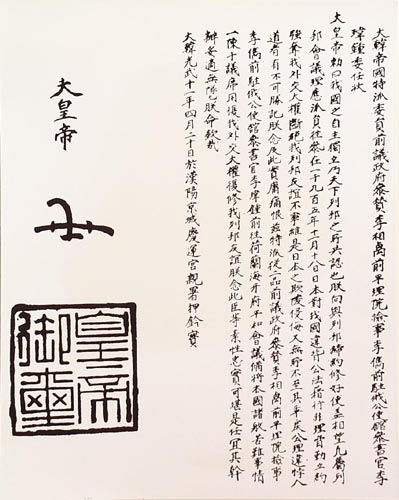 大韓帝國特派委員前議政府參贊李相卨前平理院檢事李儁前駐俄公使館參書官李
瑋鍾委任狀
大皇帝勅曰我國之自主獨立乃天下列邦之所共認也朕向與列邦締約修好使盖相望凡屬列
邦會議理應派員往參在一千九百五年十一月十八日日本對我國違背公法肆行非理脅勒立約
強奪我外交大權斷絕我列邦友誼不寧惟是日本之欺陵侵侮無所不至其乖戾公理違悖人
道者有不可勝記朕念及此實庸痛恨玆特派從二品前議政府參贊李相卨前平理院檢事
李儁前駐俄公使館參書官李瑋鍾前往荷蘭海牙府平和會議備將本國諸般苦難事情
一陳于議席用復我外交大權復修我列邦友誼朕念此臣等素性忠實可堪是任宜其幹
辦妥適無隕朕命欽哉
大韓光武十一年四月二十日於漢陽京城慶運宮親署押鈐寶
大皇帝
皇帝御璽